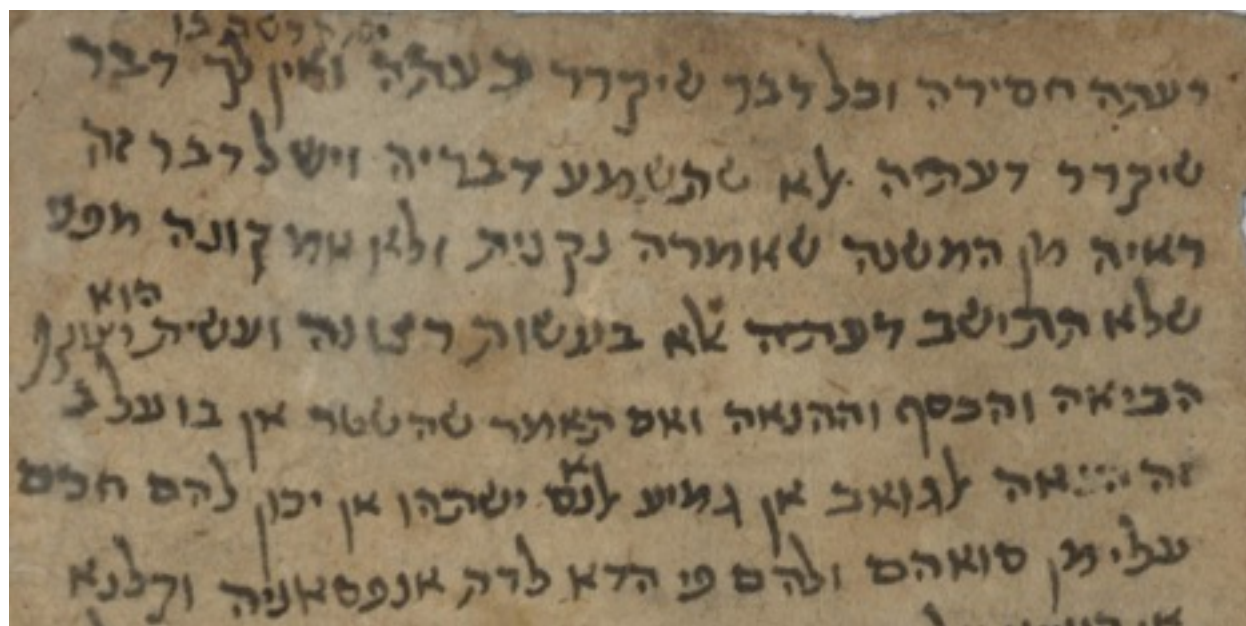 דעתה חסירה וכל דבר שיקדד בעתה ואין לך דבר
שיקדד דעתה לא שתשמע דבריה ויש לדבר זה
ראיה מן המשנה שאמרה נקנית ולאן אמ קונה מפע
שלא תתישב דעתה אלא בעשות רצונה ועשית רצונה הוא
הביאה והכסף וההנאה ואם תאמר שהשטר אן בו
זה לגואב אן גמיע אלנאס ישתהו אן יכון להם חכם
עלי מן סואהם ולהם פי הדא לדה אנפסאניה וקלנא